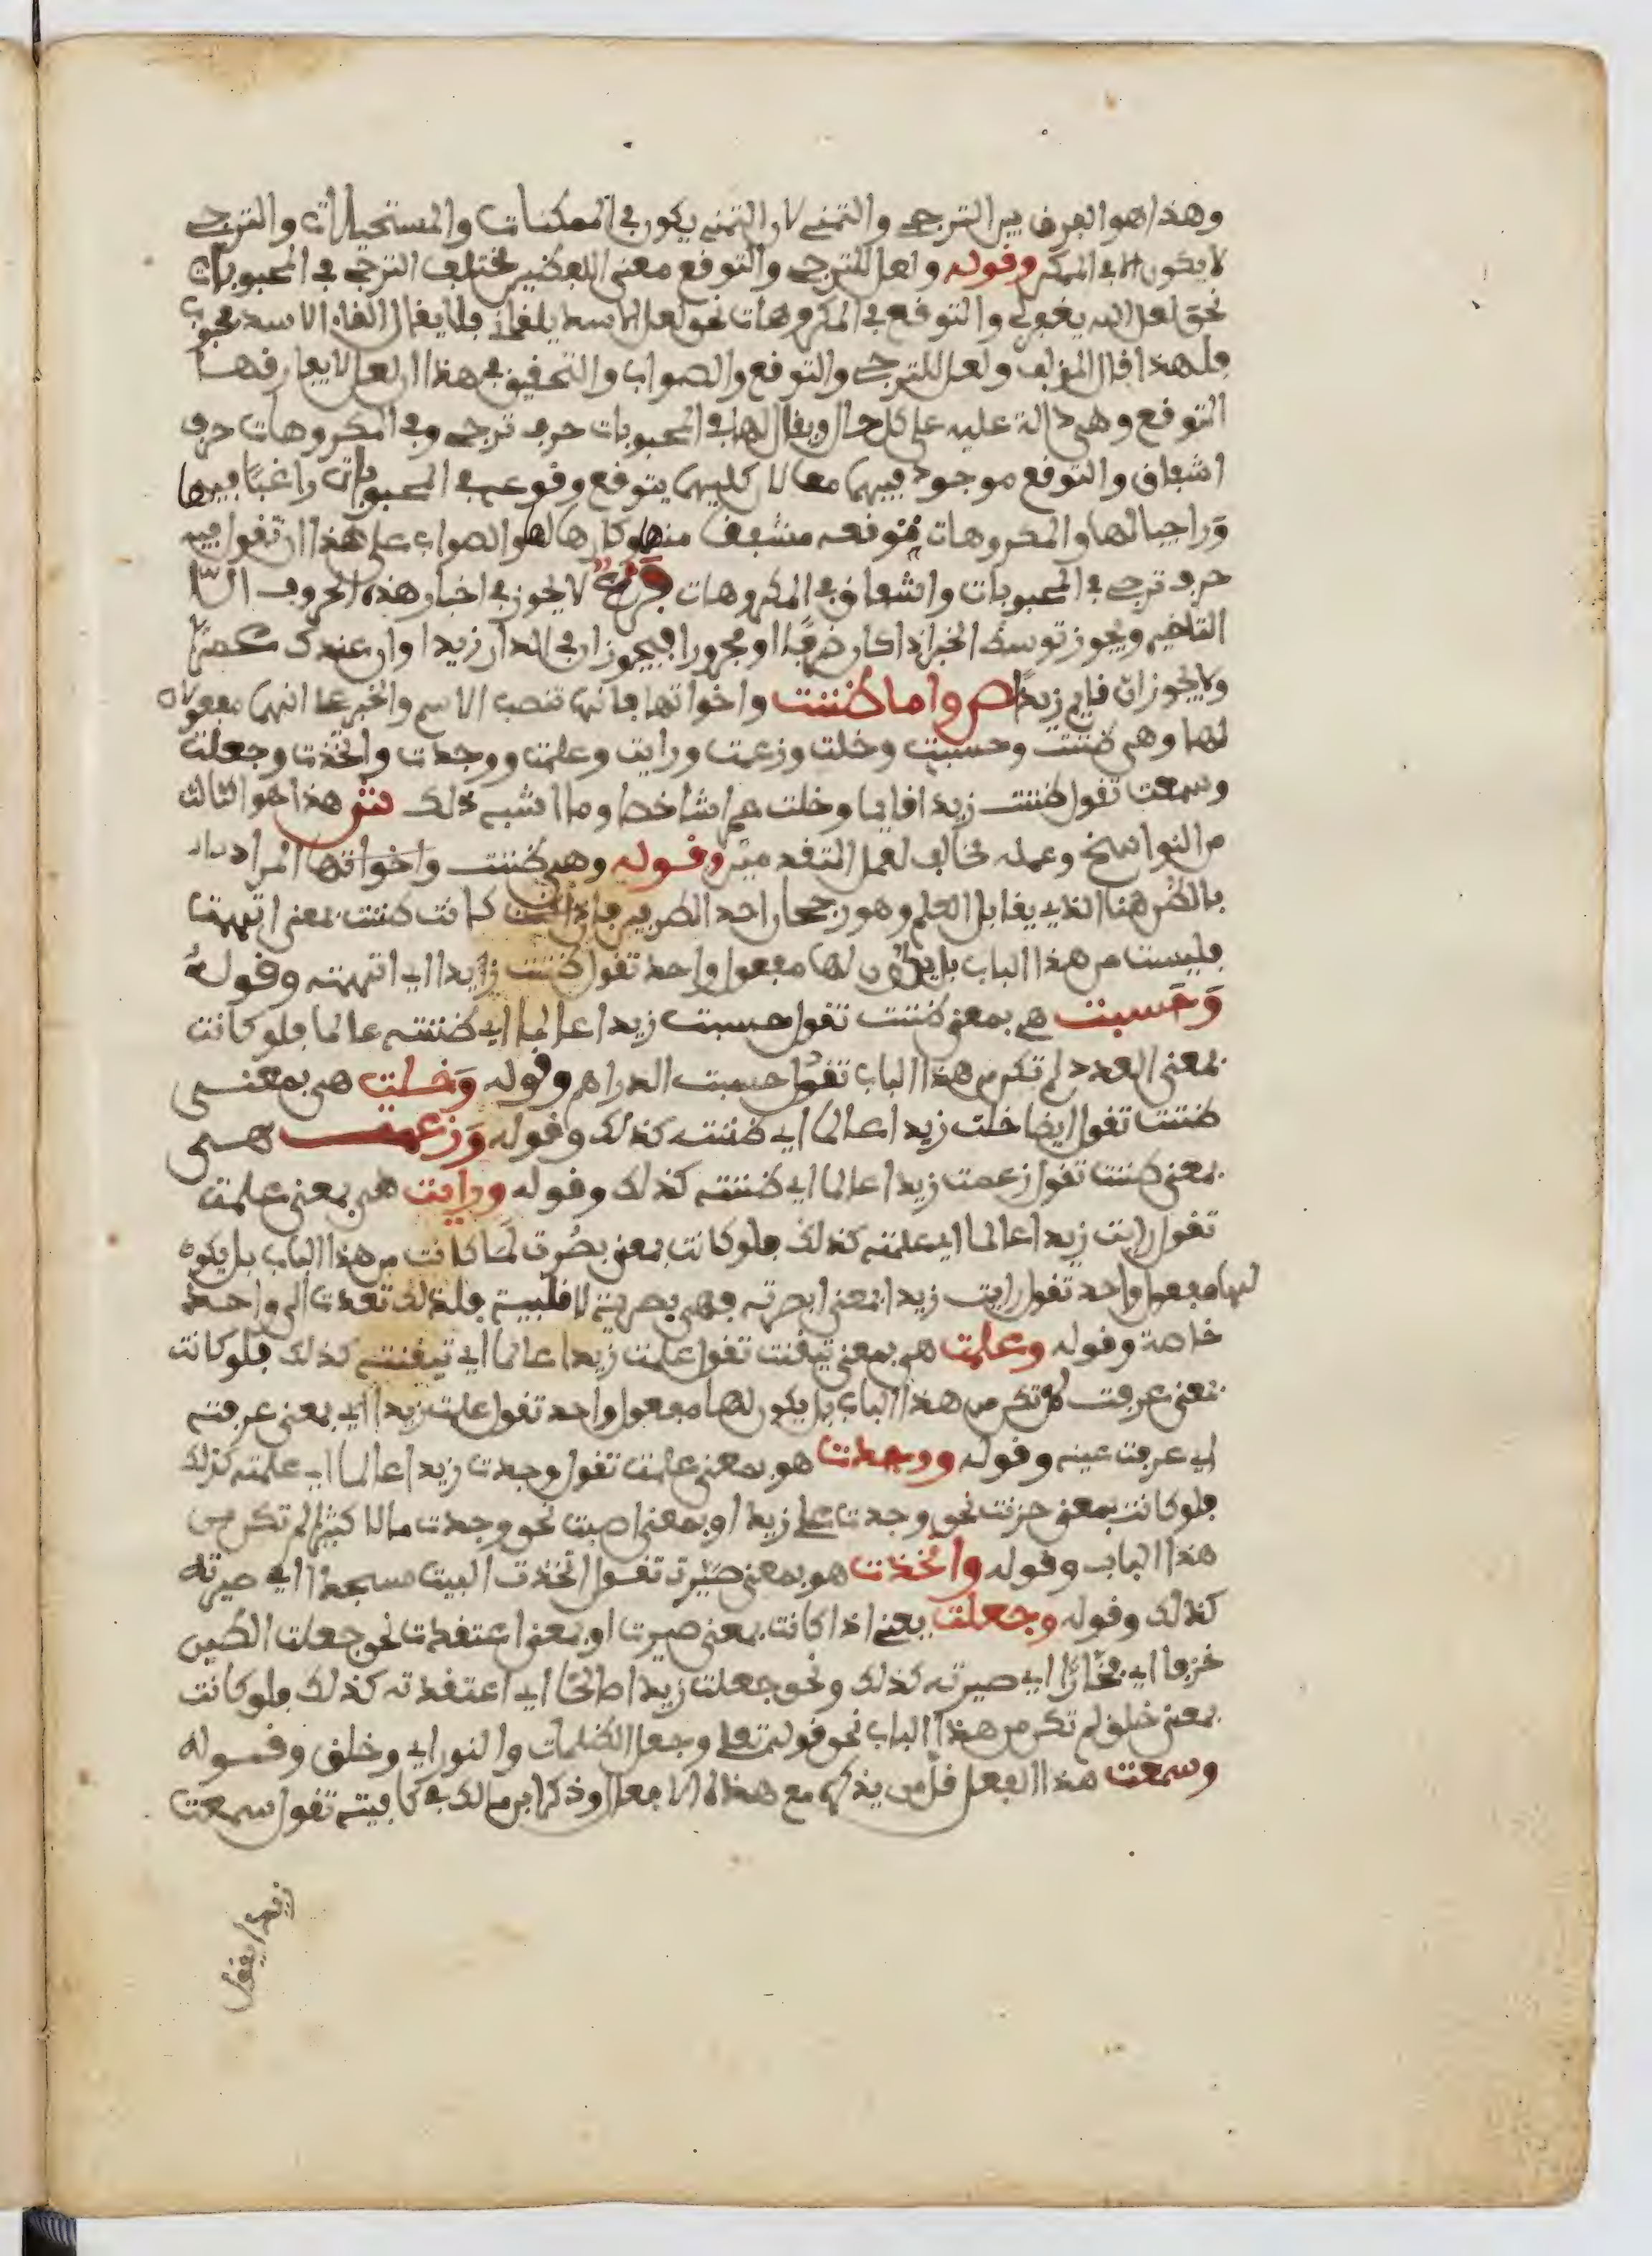 وهذا هو الفرق بين الترجي والتمني لان التمني يكون في الممكنات والمستحيلات والترجي
لا يكون الا في الممكن وقوله ولعل للترجي والتوقع معنى اللفظين مختلف الترجي في المحبوبات
نحو لعل الله يغفر لي والتوقع في المكروهات نحو لعل الاسد يلقاني فلا يقال القاء الاسد محبوب
فلهذا قال المؤلف ولعل للترجي والتوقع والصواب والتحقيق في هذا ان لعل لا يفارقها
التوقع وهي دالة عليه على كل حال ويقال لها في المحبوبات حرف ترجي وفي المكروهات حرف
اشفاق والتوقع موجود فيهما معا لان كليهما يتوقع وقوعه في المحبوبات راغبا فيها
وراجيا لها والمكروهات متوقعه مشفف منها وكارها لها والصواب على هذا ان تقول فيه
حرف ترجي في المحبوبات واشفاق في المكروهات فرع لا يجوز في اخبار هذه الحروف الا
التاخير ويجوز توسط الخبر اذا كان ظرفا او مجرورا فيجوز ان في الدار زيدا وان عندك عمرا
ولا يجوز ان قايم زيدا ص واما ظننت واخواتها فانها تنصب الاسم والخبر على انهما مفعولان
لها وهي ظننت وحسبت وخلت وزعمت ورايت وعلمت ووجدت واتخذت وجعلت
وسمعت تقول ظننت زيدا قايما وخلت عمرا شاخصا وما اشبه ذلك ش هذا هو الثالث
من النواسخ وعمله مخالف لعمل المتقدمين وقوله وهي ظننت واخواتها المراد
بالظن هنا الذي يقابل العلم وهو رجحان احد الطرفين فاذا كانت ظننت بمعنى اتهمت
فليست من هذا الباب بل يكون لها مفعول واحد تقول ظننت زيدا اي اتهمته وقوله
وحسبت هي بمعنى ظننت تقول حسبت زيدا عالما اي ظننته عالما فلو كانت
بمعنى العدد لم تكن من هذا الباب تقول حسبت الدراهم وقوله وخلت هي بمعنى
ظننت تقول ايضا خلت زيدا عالما اي ظننته كذلك وقوله وزعمت هي
بمعنى ظننت تقول زعمت زيدا عالما اي ظننته كذلك وقوله ورايت هي بمعنى علمت
تقول رايت زيدا عالما اي علمته كذلك فلو كانت بمعنى بصرت لما كانت من هذا الباب بل يكون
لها مفعول واحد تقول رايت زيدا بمعنى ابصرته فهي بصرية لا قلبية فلذلك تعدت الى واحد
خاصة وقوله وعلمت هي بمعنى تيقنت تقول علمت زيدا عالما اي تيقنته كذلك فلو كانت
بمعنى عرفت لم تكن من هذا الباب بل يكون لها مفعول واحد تقول علمت زيدا اي بمعنى عرفته
اي عرفت عينه وقوله ووجدت هو بمعنى علمت تقول وجدت زيدا عالما اي علمته كذلك
فلو كانت بمعنى حزنت نحو وجدت على زيد او بمعنى اصبت نحو وجدت مالا كثيرا لم تكن من
هذا الباب وقوله واتخذت هو بمعنى صيرت تقول اتخذت البيت مسجدا اي صيرته
كذلك وقوله وجعلت يعني اذا كانت بمعنى صيرت او بمعنى اعتقدت نحو جعلت الطين
خزفا اي فخارا اي صيرته كذلك ونحو جعلت زيدا صالحا اي اعتقدته كذلك فلو كانت
بمعنى خلق لم تكن من هذا الباب نحو قوله تعلى وجعل الظلمات والنور اي وخلق وقوله
وسمعت هذا الفعل قل من يذكره مع هذه الافعال وذكر ابن مالك في كافيته تقول سمعت
زيدا يقول